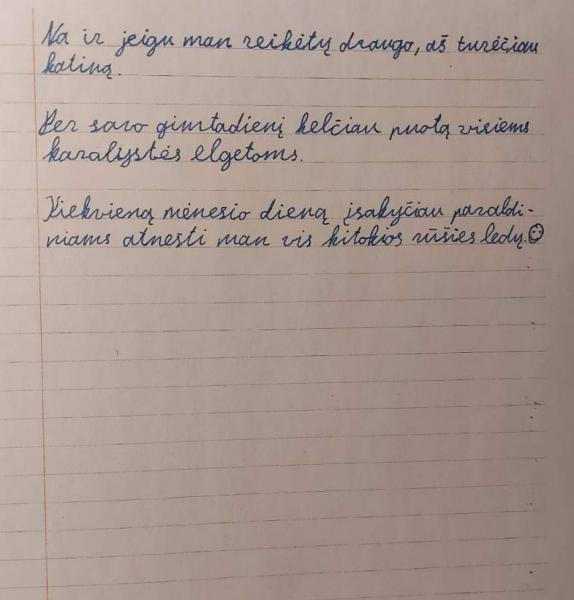 Na ir jeigu man reikėtų draugo, aš turėčiau
katiną.
Per savo gimtadienį kelčiau puotą visiems
karalystės elgetoms.
Kiekvieną mėnesio dieną įsakyčiau pavaldi-
niams atnešti man vis kitokios rūšies ledų.☺